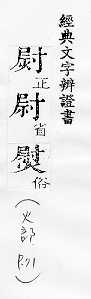 經典文字辨證書
㷉正
尉省
熨俗
(火部 P.71)